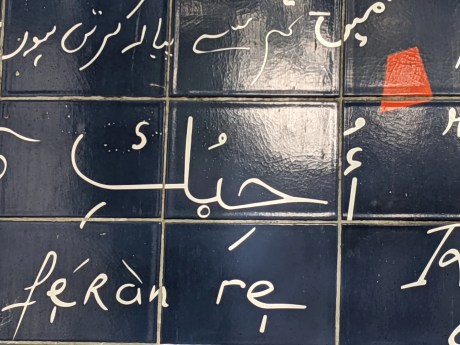 میں تم سے پیار کرتی ہوں
أُحِبُّكِ
fẹ́ràn rẹ